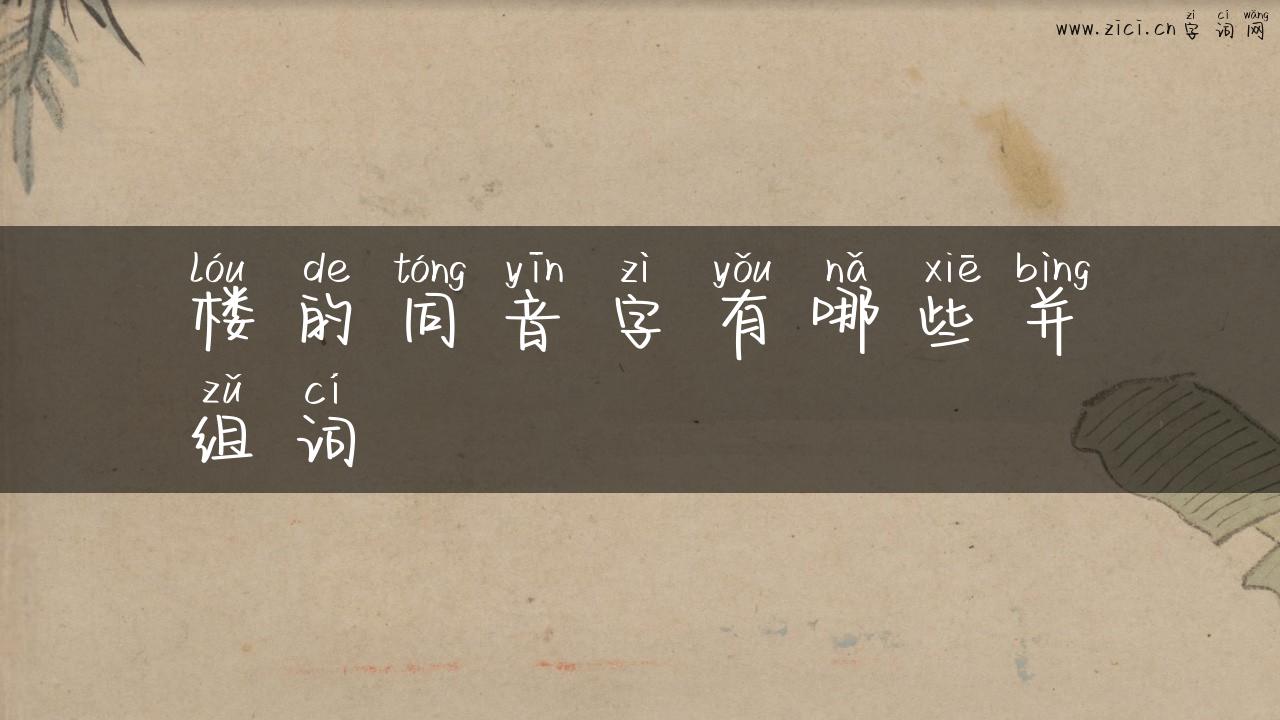 zì cí wǎng
www.zici.cn 字词网
lóu de tóng yīn zì yǒu nǎ xiē bìng
楼的同音字有哪些并
zǔ cí
组词